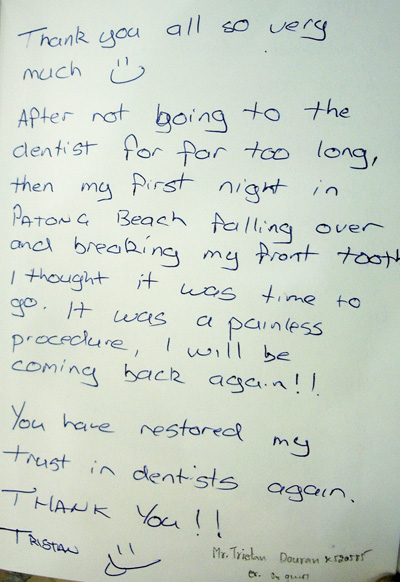 Thank you all so very
much
After not going to the
dentist for far too long,
then my first night in
Patong Beach falling over
and breaking my front tooth
I thought it was time to
go. It was a painless
procedure, I will be
coming back again!!
You have restored my
trust in dentists again.
THANK YOU!!
TRISTAN
Mr. Tristan